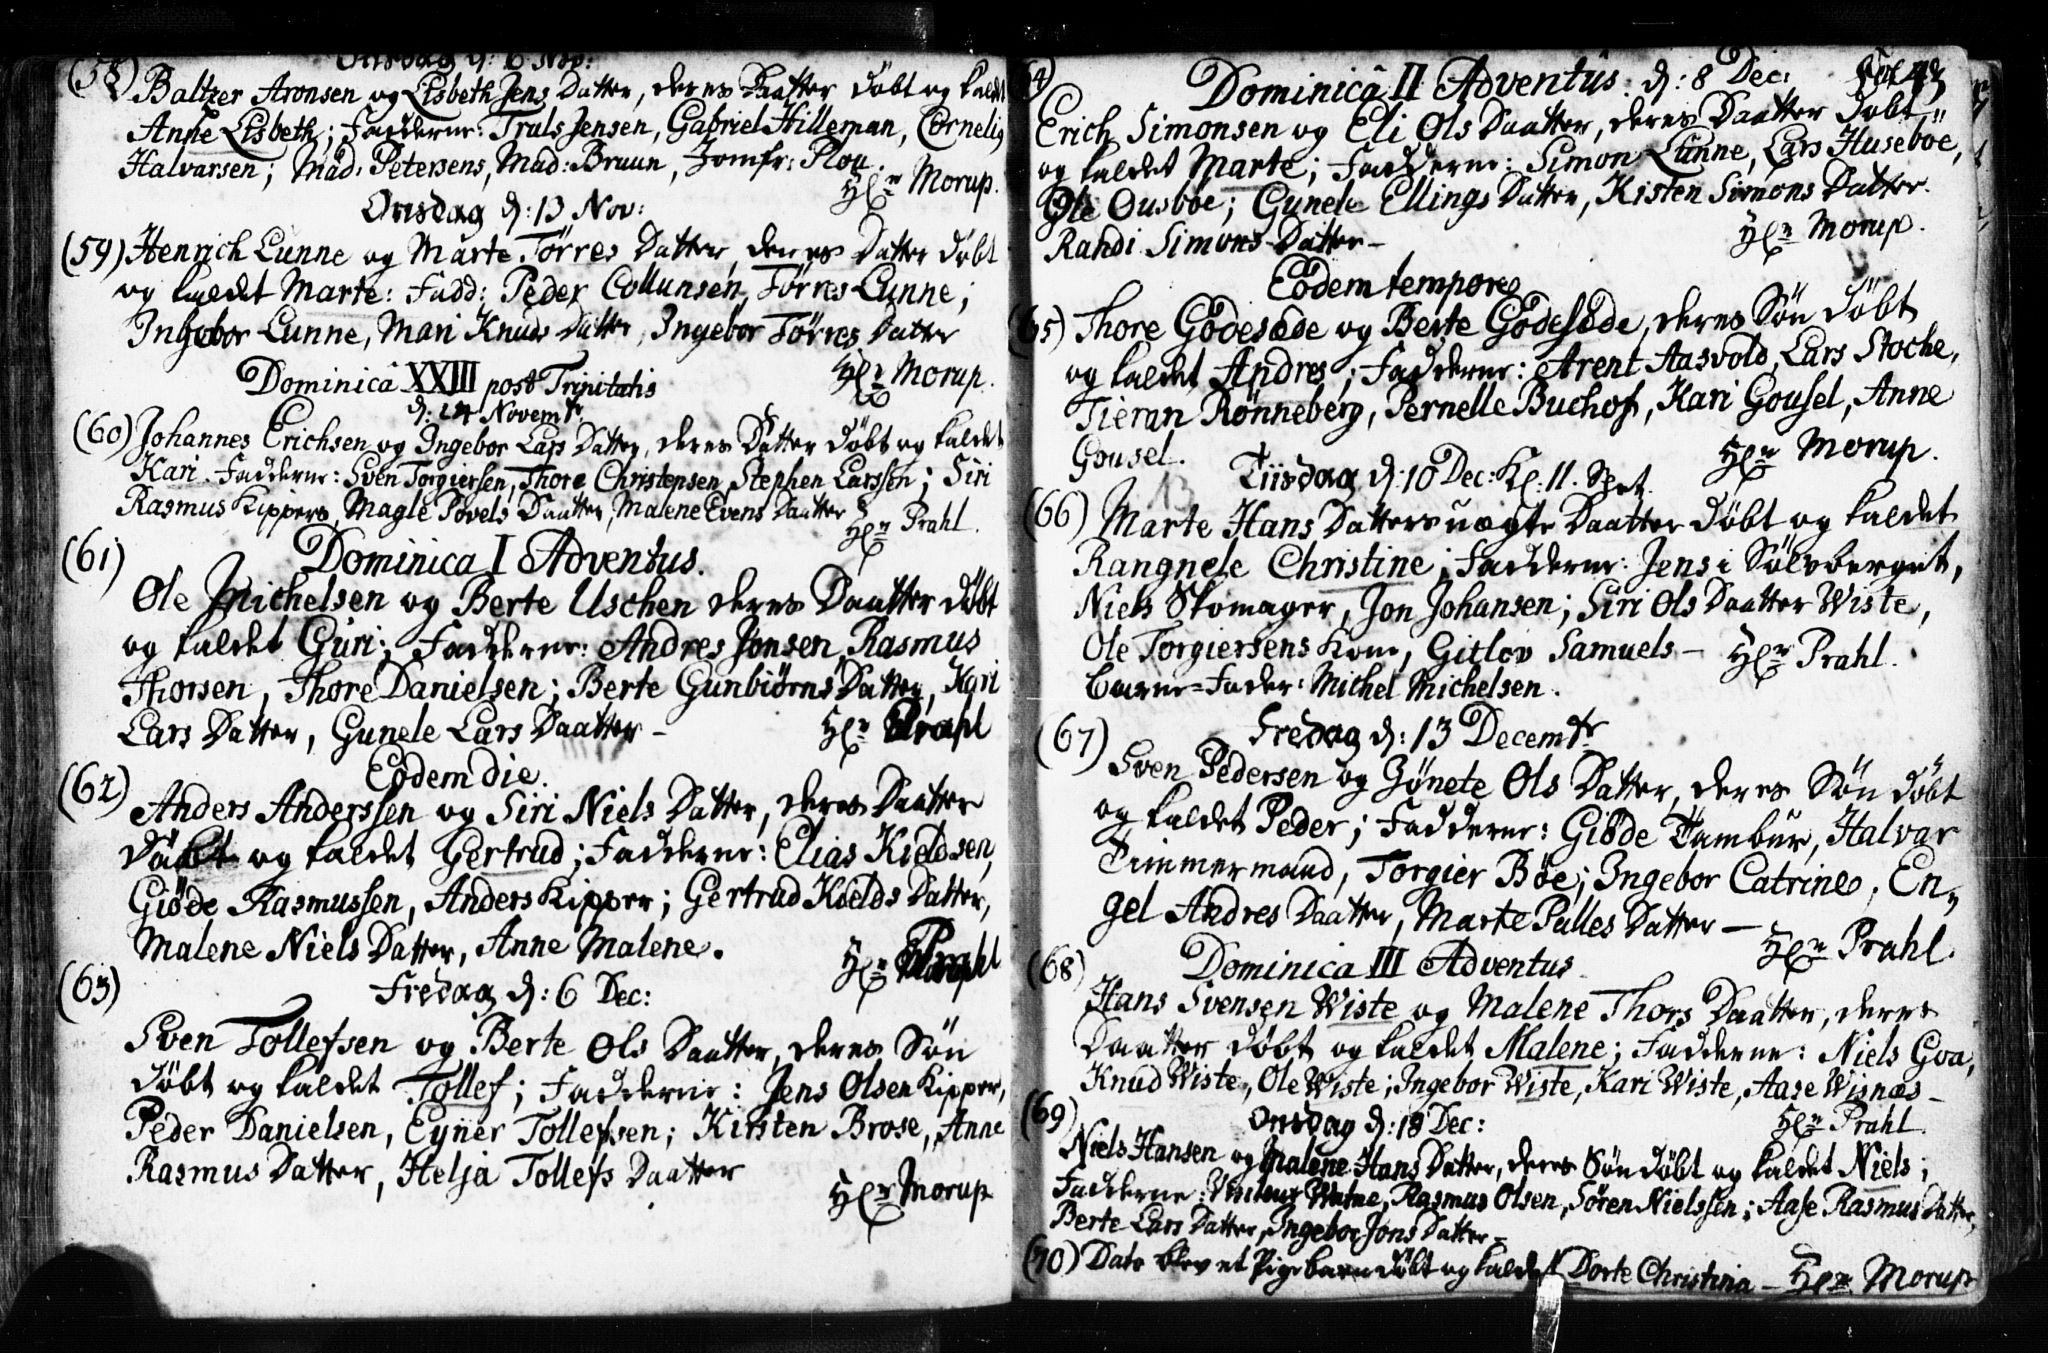 Onsdag d: 6 Nov:
(58) Baltzer Aronsen og Lisbeth Jens Datter, deres Daatter döbt og kaldet
Anne Lisbeth; Fadderne: Truls Jensen, Gabriel Hilleman, Cornelig
Halvarsen; Mad: Petersens, Mad: Bruun, Jomfr: Plou.
Hlr Morup.
Onsdag d: 13 Nov:
(59) Henrich Lunne og Marte Törres Datter, deres Datter döbt
og kaldet Marte: Fadd: Peder Collunsen, Törres Lunne;
Ingebor Lunne, Mari Knuds Datter, Ingebor Törres Datter
Hlr Morup.
Dominicâ XXIII post Trinitatis
d: 24 Novembr
(60) Johannes Erichsen og Ingebor Lars Datter, deres Datter döbt og kaldet
Kari. Fadderne: Sven Torgiersen, Thore Christensen, Stephen Larssen; Siri
Rasmus Kippers, Magle Povels Daatter, Malene Evens Daatter
Hlr Prahl.
(61) Dominica I Adventus.
Ole Michelsen og Berte Uschen deres Daatter döbt
og kaldet Guri; Fadderne: Andres Jonsen, Rasmus
Thorsen, Thore Danielsen; Berte Gunbiörns Datter, Kari
Lars Datter, Gunele Lars Daatter –
Hlr Prahl
Eodem die.
(62) Anders Anderssen og Siri Niels Datter, deres Daatter
Döbt og kaldet Gertrud; Fadderne: Elias Kieldsen,
Giöde Rasmussen, Anders Kipper; Gertrud Kields Datter,
Malene Niels Datter, Anne Malene.
Hlr Prahl
(63) Fredag d: 6 Dec:
Sven Tollefsen og Berte Ols Daatter, deres Sön
döbt og kaldet Tollef; Fadderne: Jens Olsen Kipper,
Peder Danielsen, Eyner Tollefsen; Kirsten Brose, Anne
Rasmus Datter, Helja Tollefs Daatter
Hlr Morup
Fol 43
(64) Dominicâ II Adventus. d: 8 Dec:
Erich Simonsen og Eli Ols Daatter, deres Daatter döbt
og kaldet Marte; Fadderne: Simon Lunne, Lars Huseböe,
Ole Ousböe; Gunele Ellings Datter, Kisten Simons Datter
Randi Simons Datter –
Hlr Morup.
Eodem tempore
(65) Thore Godesæde og Berte Godesæde, deres Sön döbt
og kaldet Andres; Fadderne: Arent Aasvold, Lars Stocke,
Tieran Rönneberg, Pernelle Buchof, Kari Gousel, Anne
Gousel.
Hlr Morup.
Tiisdag d: 10 Dec: Kl: 11.
(66) Marte Hans Datters uægte Daatter döbt og kaldet
Rangnele Christine; Fadderne: Jens i Sölvberget,
Niels Skomager, Jon Johansen; Siri Ols Daatter Wiste,
Ole Torgiersens Kone, Gitlov Samuels –
Hlr Prahl.
Barne-Fader: Michel Michelsen.
(67) Fredag d: 13 Decembr
Sven Pedersen og Jönete Ols Datter, deres Sön döbt
og kaldet Peder; Fadderne: Giöde Tambur, Halvar
Timmermand, Torgier Böe; Ingebor Catrine, En-
gel Andres Daatter, Marte Palles Datter –
Hlr Prahl.
(68) Dominica III Adventus
Hans Svensen Wiste og Malene Thors Daatter, deres
Daatter döbt og kaldet Malene; Fadderne: Niels Goa,
Knud Wiste, Ole Wiste; Ingebor Wiste, Kari Wiste, Aase Wisnæs –
Hlr Prahl.
(69) Onsdag d: 18 Dec:
Niels Hansen og Malene Hans Datter, deres Sön döbt og kaldet Niels;
Fadderne: Rasmus Olsen, Sören Nielssen; Aase Rasmus Datter,
Berte Lars Datter, Ingebor Jons Datter –
(70) Dato blev et Pigebarn döbt og kaldet Dorte Christina – Hlr Morup